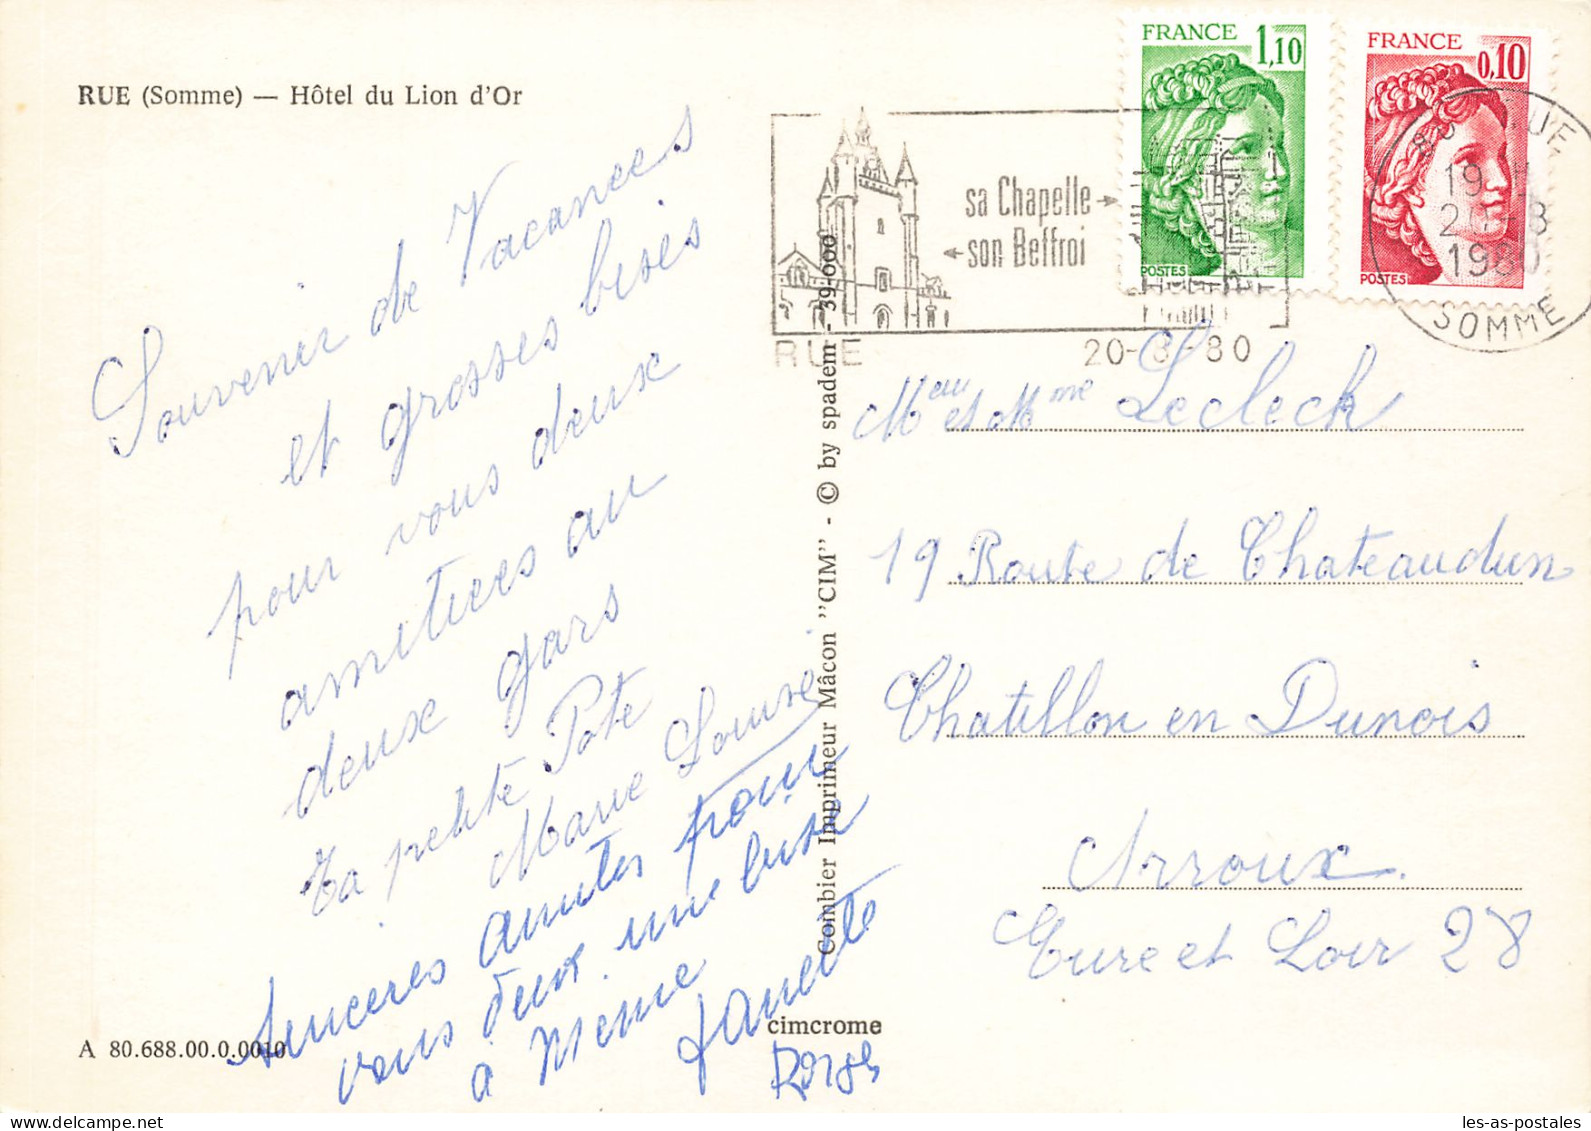 RUE (Somme) — Hôtel du Lion d'Or
FRANCE 1,10
POSTES
FRANCE 0,10
POSTES
sa Chapelle
son Beffroi
RUE
20-8-80
RUE
19 H
20-8
1980
SOMME
Souvenir de Vacances
et grosses bises
pour vous deux
amitiees au
deux gars
Ta petite Pote
Marie Louise
Sinceres amities pour
vous deux une bise
a Meme
Janette
M et Mme Lecleck
19 Route de Chateaudun
Chatillon en Dunois
Arroux.
Eure et Loir 28
Combier Imprimeur Mâcon "CIM" - © by spadem - 39-000
cimcrome
A 80.688.00.0.0010
les-as-postales
les-as-postales.com